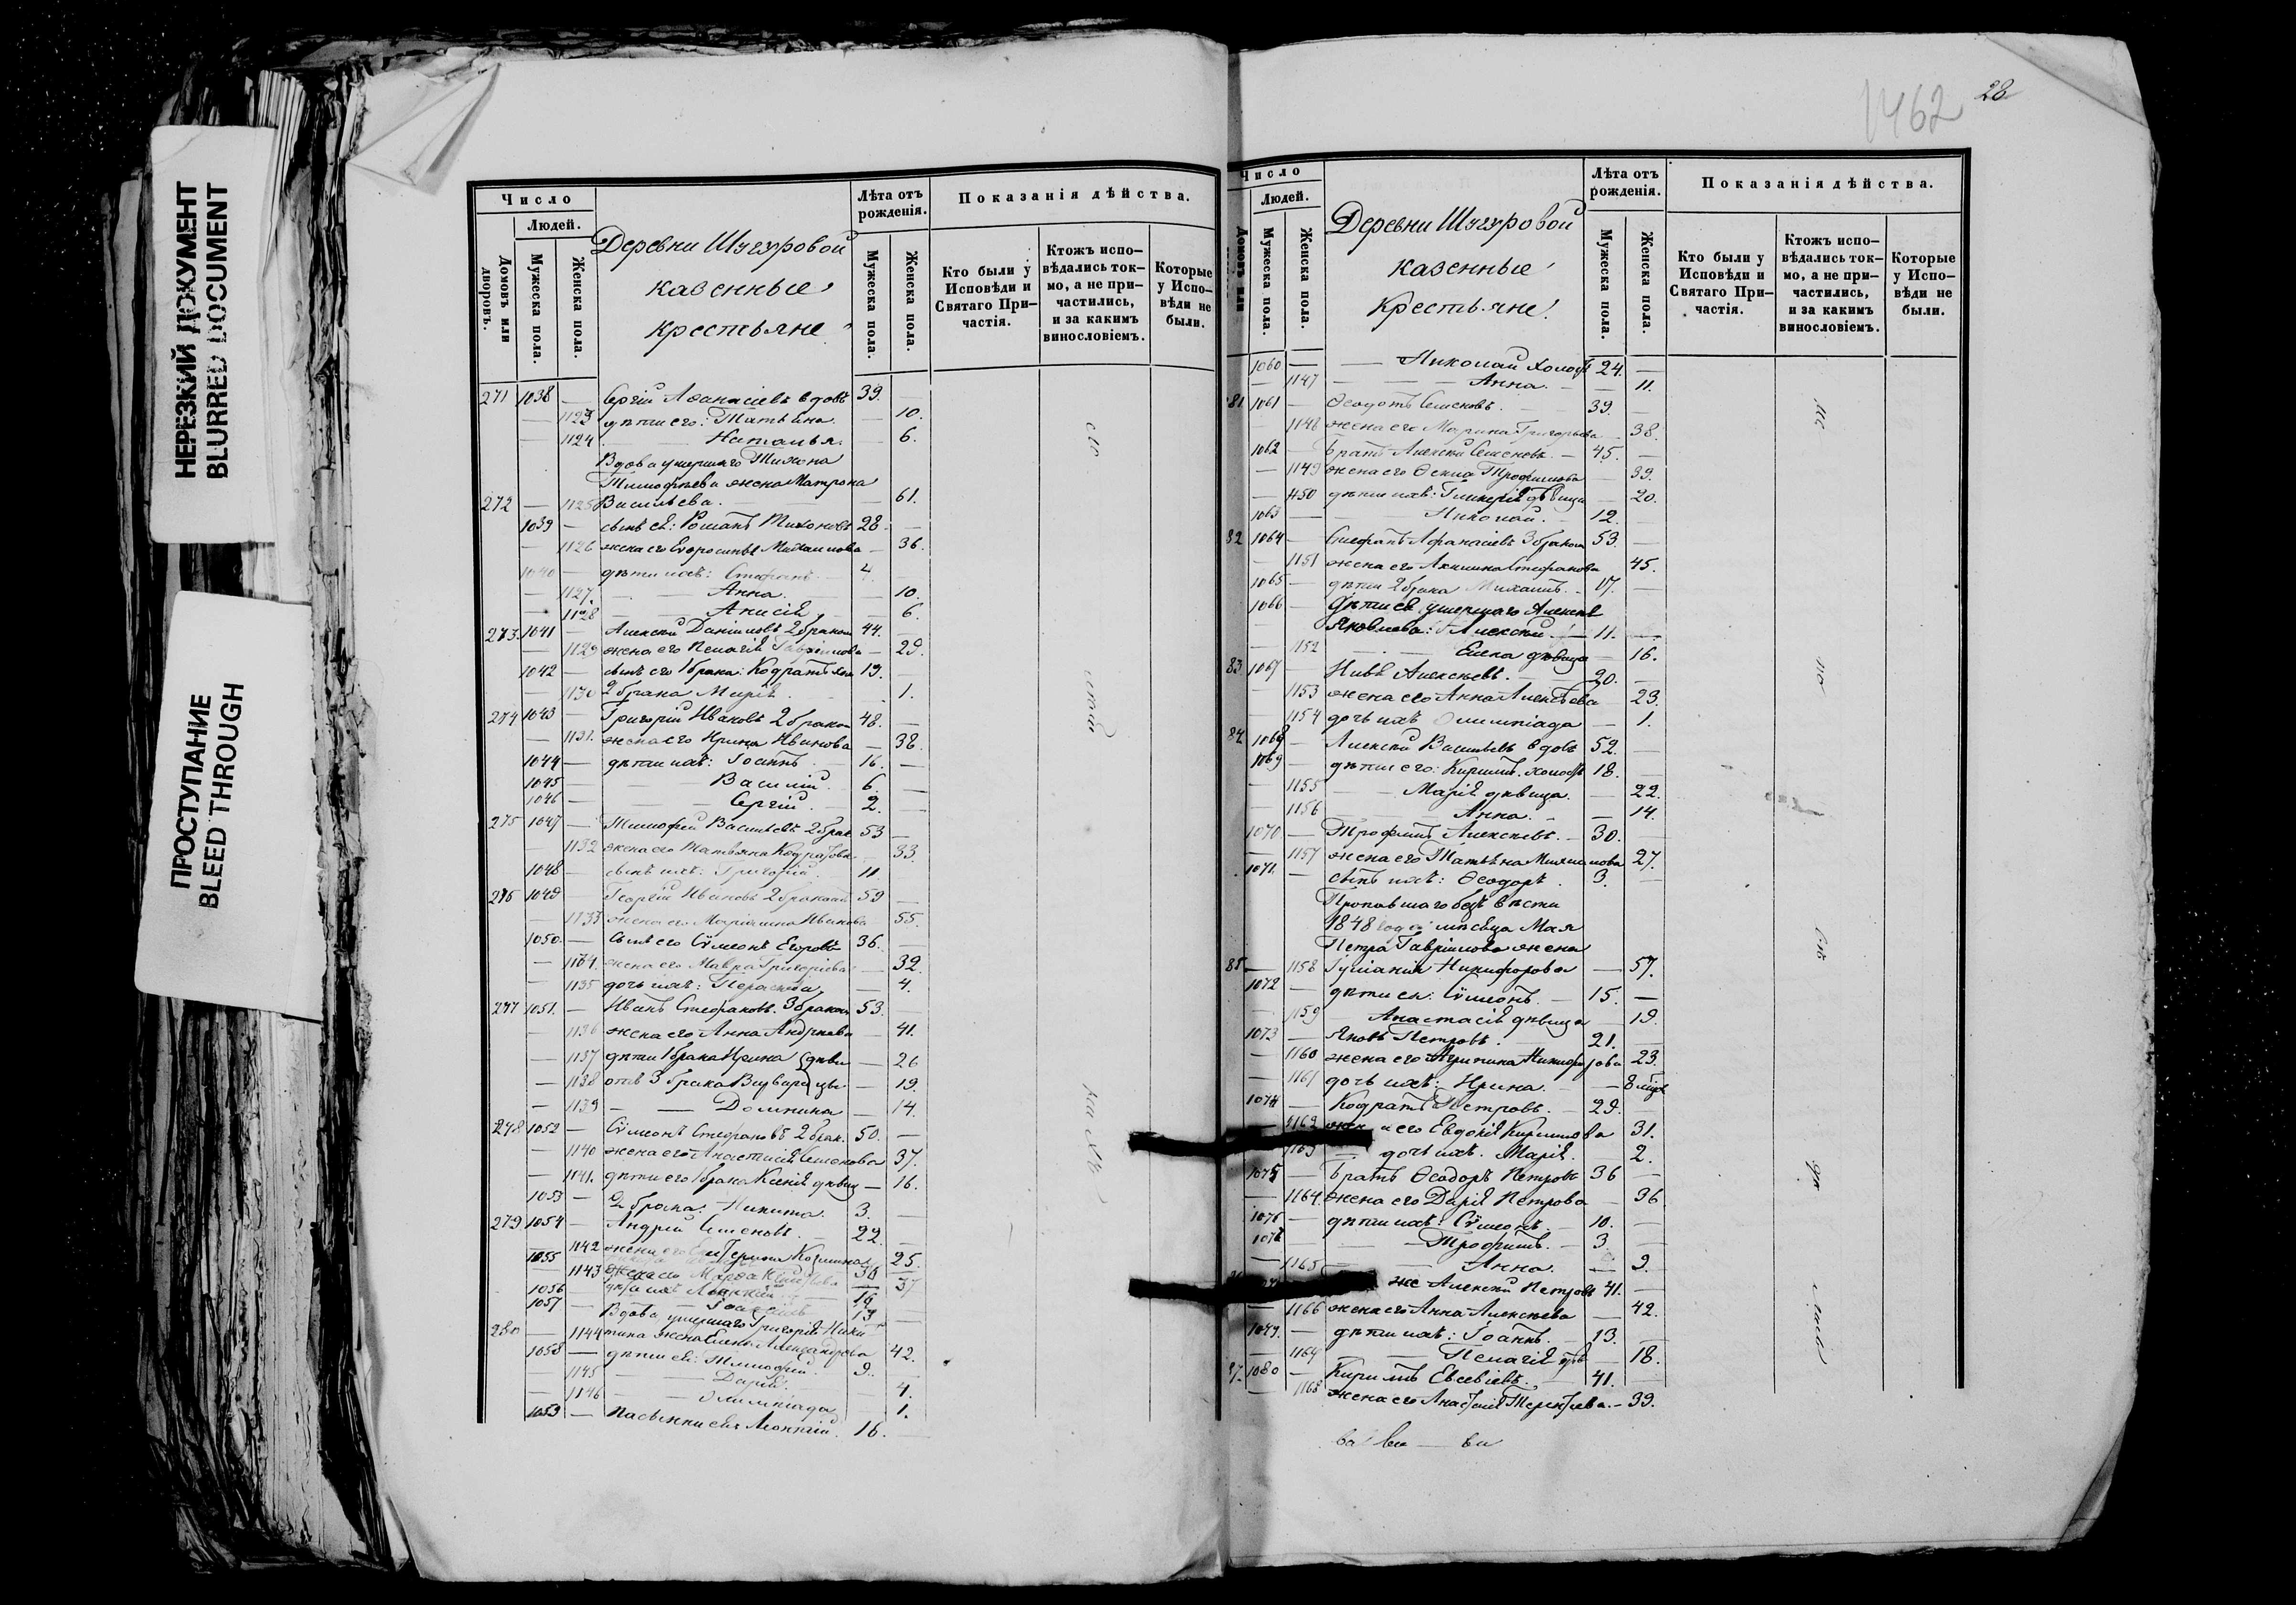 НЕРЕЗКИЙ ДОКУМЕНТ
BLURRED DOCUMENT
ПРОСТУПАНИЕ
BLEED THROUGH
Число
Людей.
Домовъ или дворовъ.
Мужеска пола.
Женска пола.
Деревни Шугуровой
казенные
крестьяне
Лѣта отъ рожденія.
Мужеска пола.
Женска пола.
Показанія дѣйства.
Кто были у Исповѣди и Святаго Причастія.
Ктожъ исповѣдались токмо, а не причастились, и за какимъ винословіемъ.
Которые у Исповѣди не были.
271 1038 — Сергій Аѳанасіевъ вдовъ 39. —
— 1123 дѣти его: Татьяна. — 10.
— 1124 — Наталья. — 6.
Вдова умершаго Тихона
Тимофѣева жена Матрона
272 — 1125 Васильева. — 61.
1039 — сынъ ея: Романъ Тихоновъ 28. —
— 1126 жена его Евфросинья Михаилова — 36.
1040 — дѣти ихъ: Стефанъ 4. —
— 1127. — Анна. — 10.
— 1128 — Анисія — 6.
273. 1041 — Алексѣй Даніиловъ 2 бракомъ 44. —
— 1129 жена его Пелагія Гавриилова — 29.
1042 — сынъ его 1 брака: Кодратъ 19. —
— 1130 2 брака Марія. — 1.
274 1043 — Григорій Ивановъ 2 бракомъ 48. —
— 1131. жена его Ирина Иванова — 38.
1044 — дѣти ихъ: Іоаннъ. 16. —
1045 — Василій. 6. —
1046 — Сергій. 2. —
275 1047 — Тимофей Васильевъ 2 брак. 53 —
— 1132 жена его Татьяна Кодратова — 33.
1048 — сынъ ихъ: Григорій. 11. —
276 1049 — Георгій Ивановъ 2 бракомъ 59 —
— 1133 жена его Маріамна Иванова 55.
1050. — сынъ его Сѵмеонъ Егоровъ 36. —
— 1134. жена его Мавра Григоріева — 32.
— 1135 дочь ихъ: Параскева — 4.
277 1051. — Иванъ Стефановъ. 3 бракомъ 53. —
— 1136 жена его Анна Андреева 41.
— 1137 дѣти 1 брака Ирина дѣви — 26
— 1138 отъ 3 брака Варвара цы — 19
— 1139 — Домнина — 14.
278. 1052 — Сѵмеонъ Стефановъ 2 брак. 50. —
— 1140 жена его Анастасія Семенова 37.
— 1141. дѣти его 1 брака Ксенія дѣвиц — 16.
1053 — 2 брака: Никита. 3. —
279. 1054 — Андрей Семеновъ. 22. —
1142 жена его Екатерина Козмина 25.
1055
1143 жена его Марѳа 36 37
1056 — 19
1057 — 13
Вдова умершаго Григорія Ники
280 — 1144 тина жена Елена Александрова 42.
1058 — дѣти ея: Тимофей. 9. —
— 1145 — Дарія. — 4.
— 1146 — Олимпіада — 1.
1059 — Пасынки ея Леонтій. 16. —
1462
28
Число
Людей.
Домовъ или
Мужеска пола.
Женска пола.
Деревни Шугуровой
казенные
крестьяне.
Лѣта отъ рожденія.
Мужеска пола.
Женска пола.
Показанія дѣйства.
Кто были у Исповѣди и Святаго Причастія.
Ктожъ исповѣдались токмо, а не причастились, и за какимъ винословіемъ.
Которые у Исповѣди не были.
1060 — Николай холост 24. —
— 1147 — Анна. — 11.
81 1061 — Ѳеодотъ Семеновъ. 39. —
1148 жена его Марина Григорьева 38.
1062 — Братъ Алексѣй Семеновъ. — 45. —
— 1149 жена его Ѳекла Трофимова 39.
— 1150 дѣти ихъ: Гликерія дѣвица — 20.
1063 — Николай. 12.
82 1064 — Стефанъ Афанасіевъ 3 бракомъ 53. —
1151 жена его Акилина Стефанова 45.
1065 — дѣти 2 брака Михаилъ. 17. —
1066 — Дѣти умершаго Алексѣя
Яковлева: Алексѣй. — 11. —
1152 Елена дѣвица — 16.
83 1067 — Алексѣевъ. 20. —
— 1153 жена его Анна Алексѣева 23.
1154 дочь ихъ Олимпіада — 1.
84 1068 — Алексѣй Васильевъ вдовъ 52. —
1069 — дѣти его: Кириллъ. холостъ 18. —
— 1155 — Марія дѣвица. — 22.
— 1156 — Анна. — 14.
1070 — Трофимъ Алексѣевъ. — 30. —
— 1157 жена его Татьяна Михаилова 27.
1071. — сынъ ихъ: Ѳеодоръ. 3. —
Пропавшаго безъ вѣсти
1848 года мѣсяца Мая
Петра Гавріилова жена
85 — 1158 Іуліанія Никифорова — 57.
1072 — дѣти ея: Сѵмеонъ. — 15. —
1159 — Анастасія дѣвица 19.
1073 — Яковъ Петровъ. 21. —
— 1160 жена его Агрипина Никифорова 23.
— 1161 дочь ихъ: Ирина. — 8
1074 — Кодратъ Петровъ. — 29. —
— 1162 его Евдокія Кириллова 31.
— дочь ихъ. Марія. 2.
1075 — Братъ Ѳеодоръ Петровъ 36 —
— 1164. жена его Дарія Петрова — 36
1076 — дѣти ихъ: Сѵмеонъ. 10. —
1077 — Трофимъ. 3. —
— 1165 — Анна. — 9.
же Алексѣй Петровъ 41. —
— 1166 жена его Анна Алексѣева 42.
1079. — дѣти ихъ: Іоаннъ. — 13. —
— Пелагія — 18.
1080 — Кириллъ Евсевіевъ. 41. —
— 1168 жена его Анастасія Терентьева. — 39.